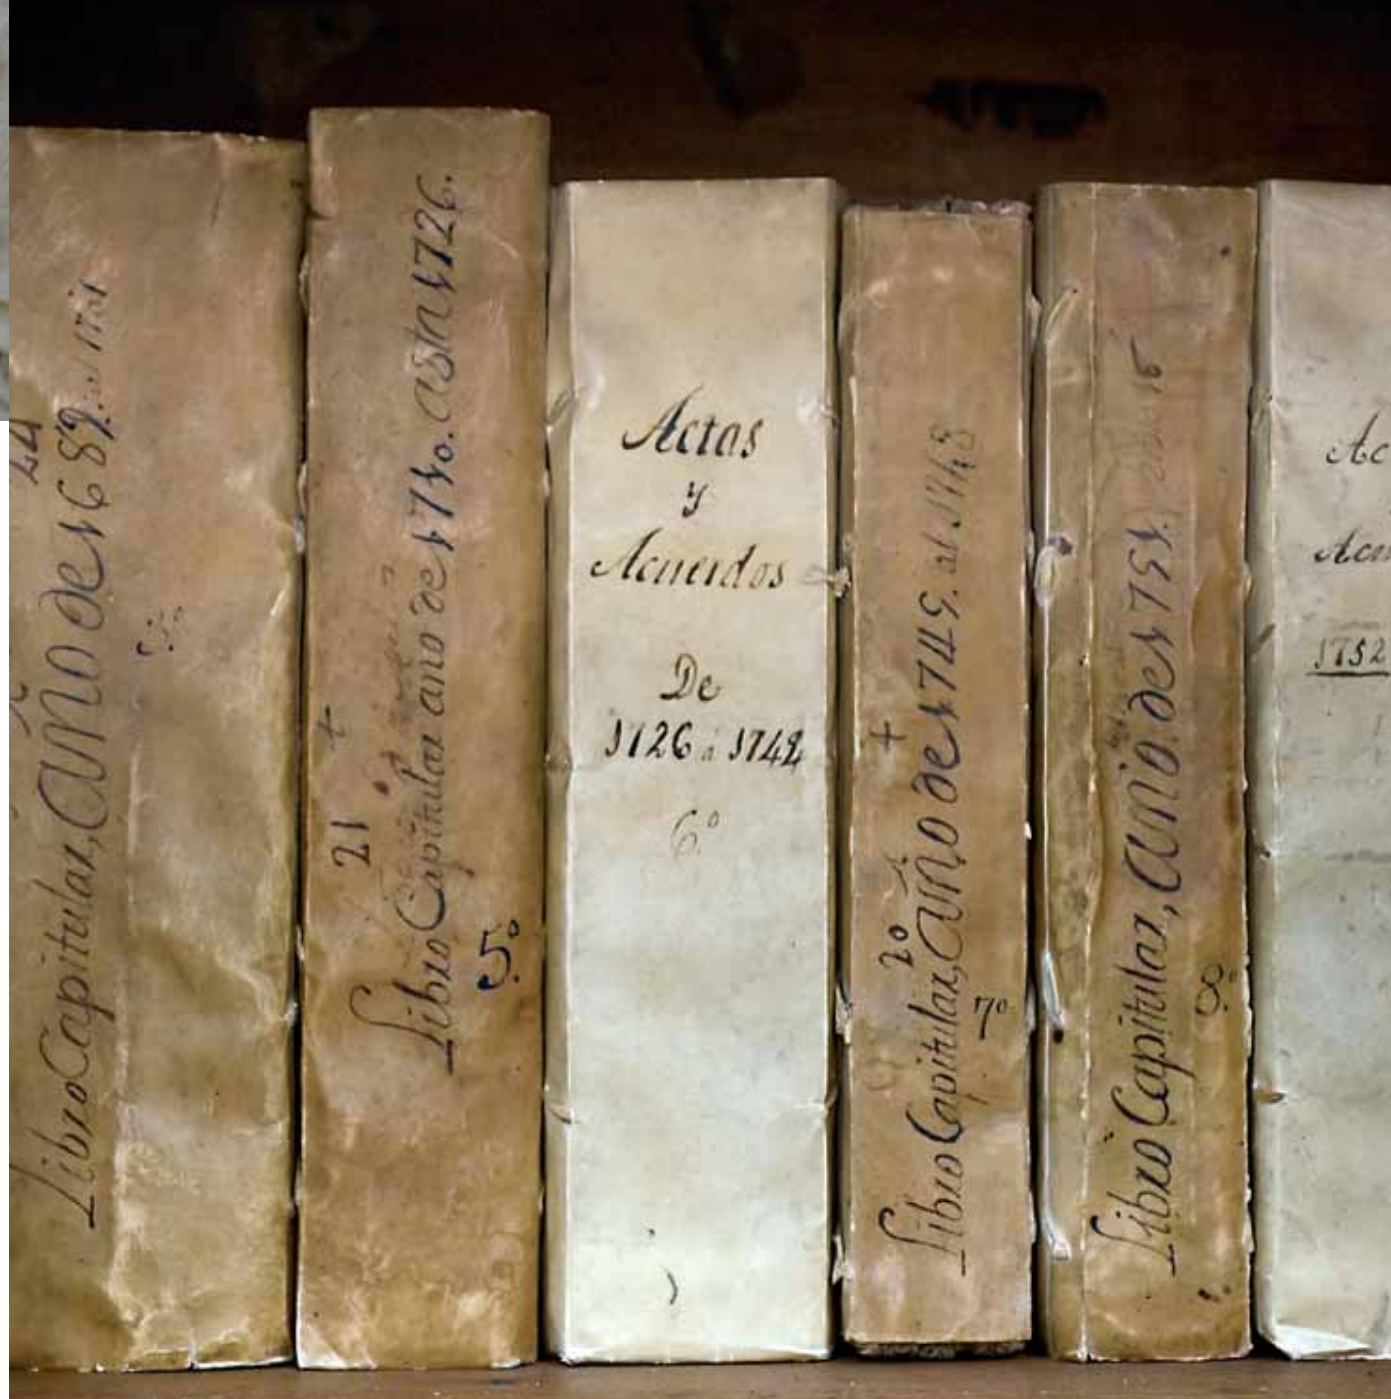 24
Libro Capitular, Año de 1689.
21 +
Libro Capitular año de 1710. asta 1726.
5.º
Actas
y
Acuerdos
De
1726 á 1742
6º
2º +
Libro Capitular, Año de 1745. al 1748
7º
Libro Capitular, Año de 1751.
8º
Ac
Acu
1752